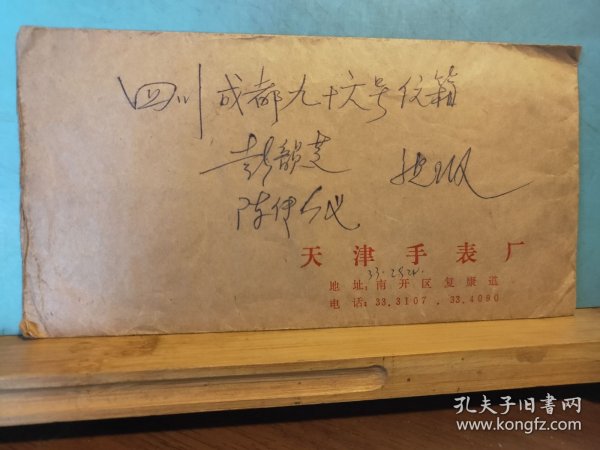 四川成都九十六号信箱
彭韻芝
陈伊 收
天津手表厂
33.2524.
地址:南开区复康道
电话:33.3107.33.4090
孔夫子旧书网
www.kongfz.com